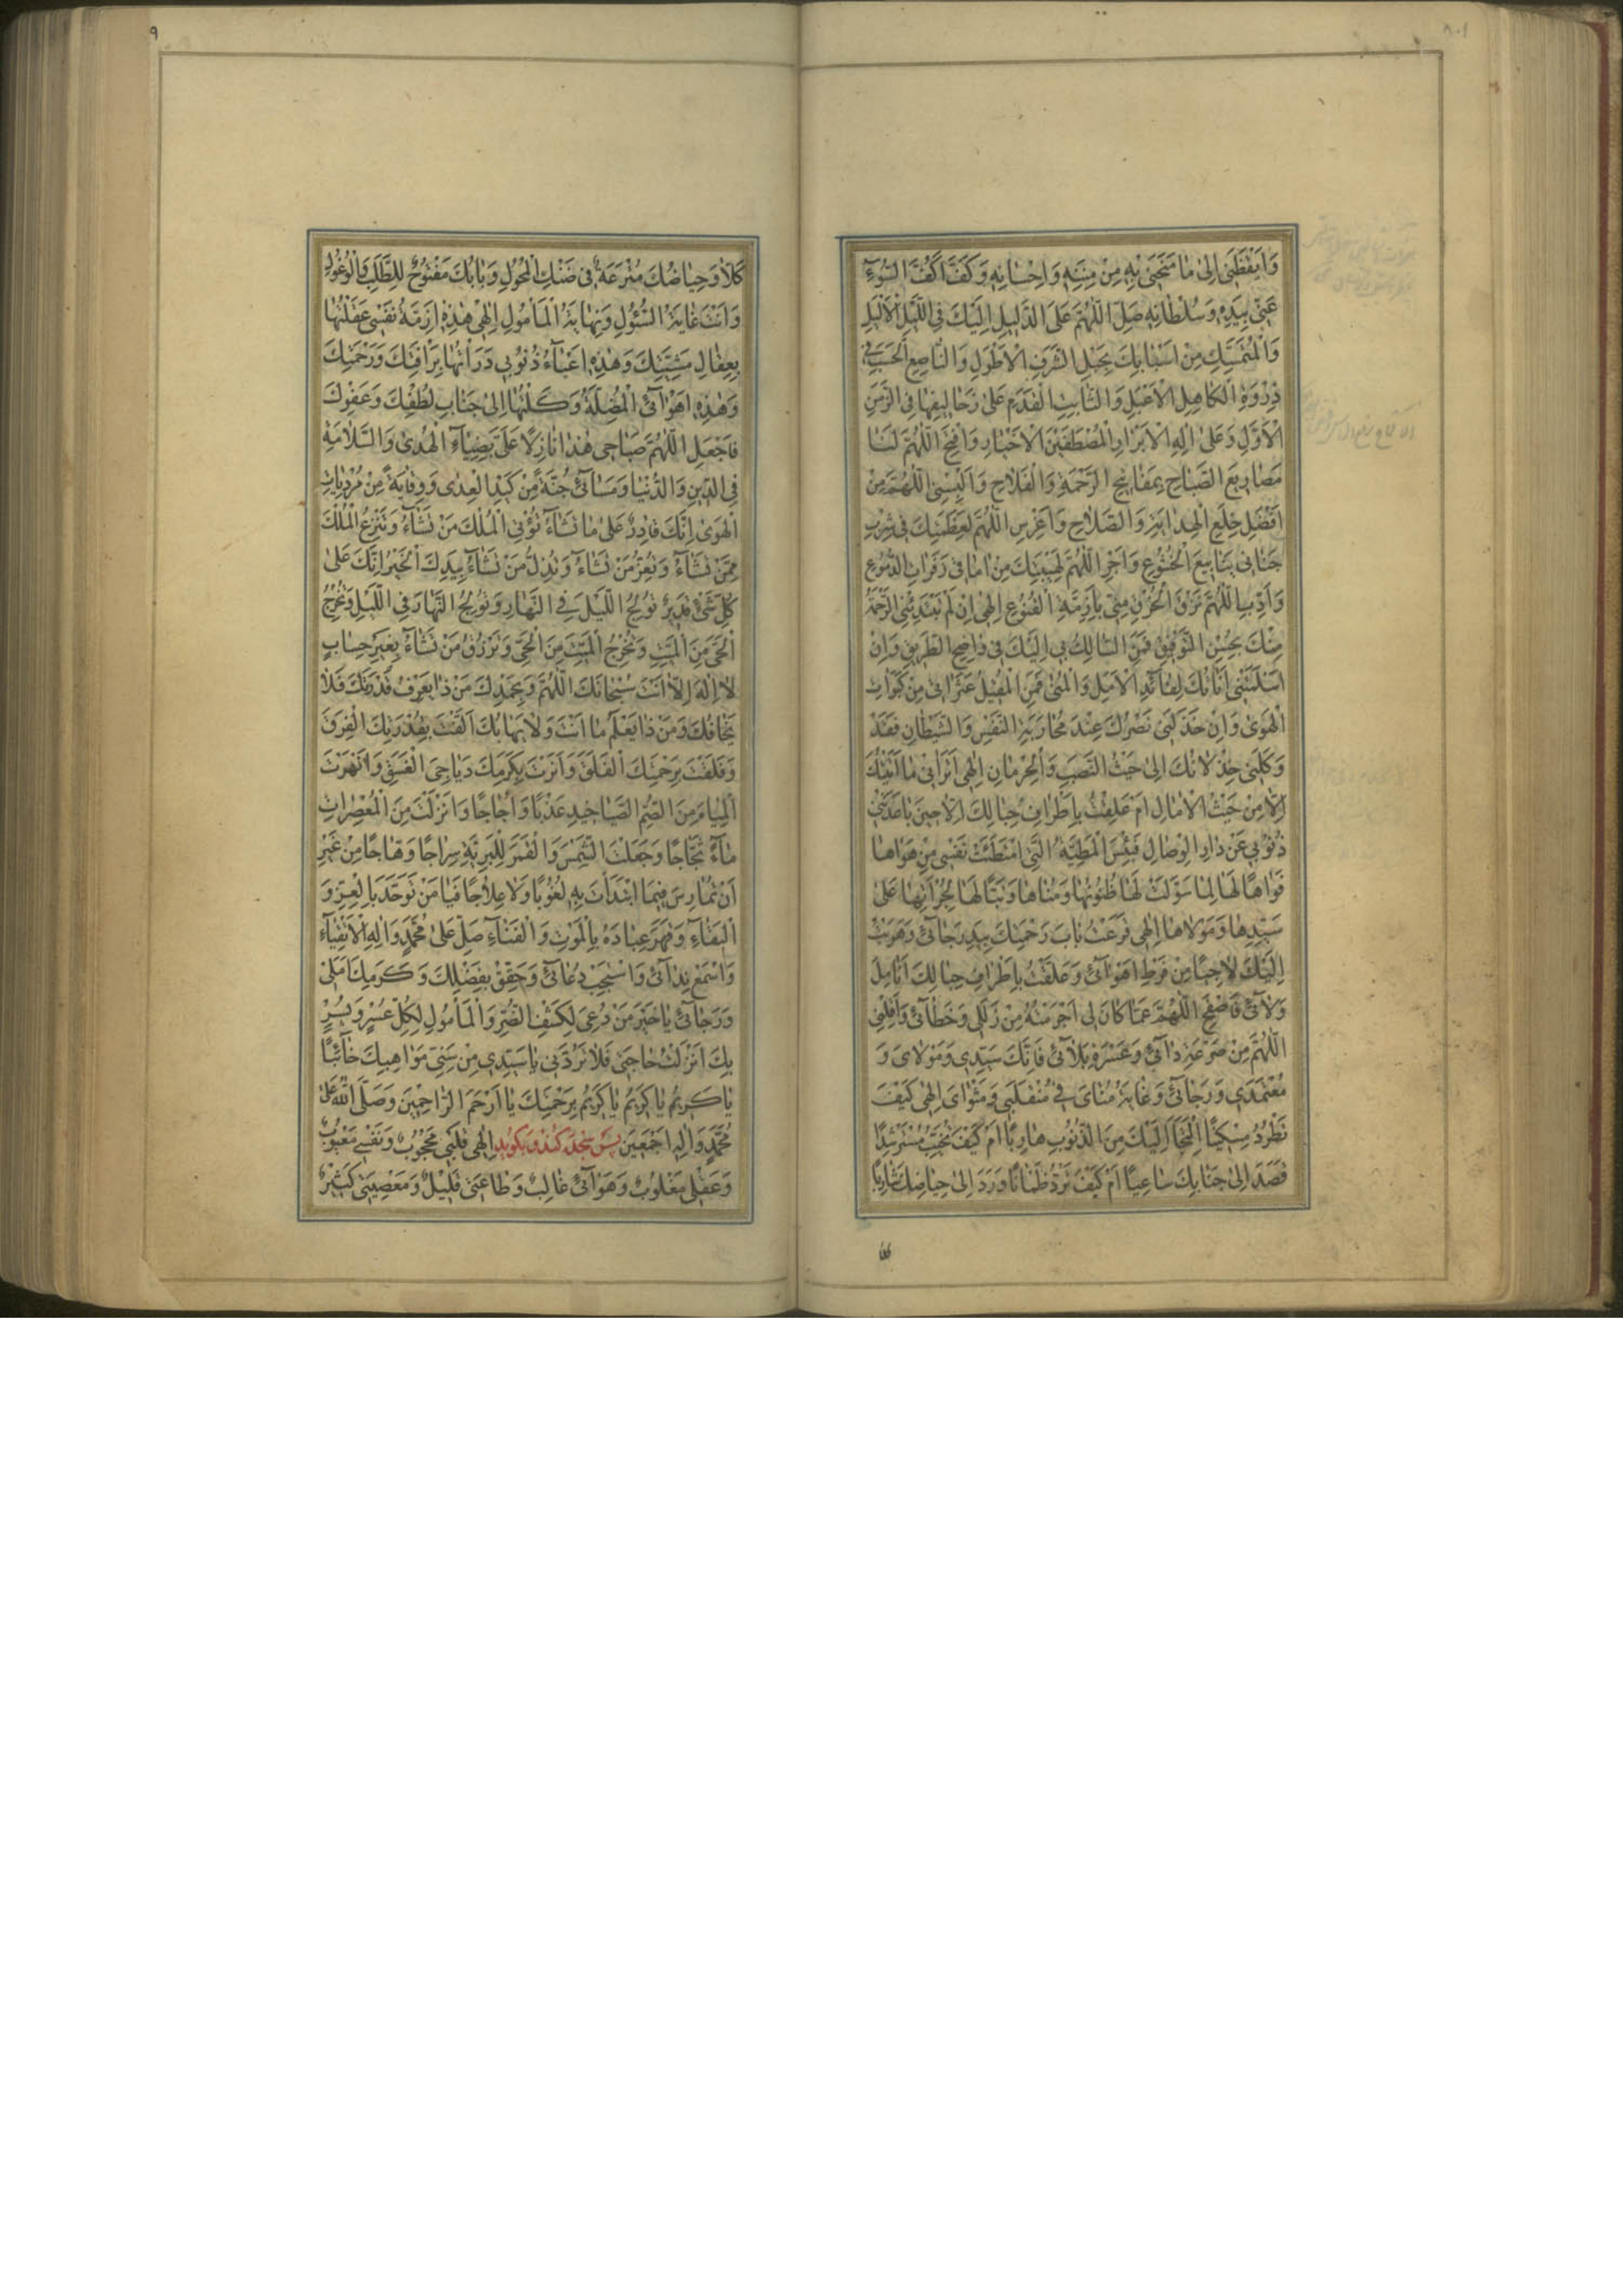 وَاَيْقَظَنى اِلىٰ مٰا مَنَحَنى بِهِ مِنْ مِنَنِهِ وَاِحْسٰانِهِ وَكَفَّ اَكُفَّ السُّوءِ
عَنّى بِيَدِهِ وَسُلْطٰانِهِ صَلِّ اللّٰهُمَّ عَلَى الدَّليلِ اِلَيْكَ فِى اللَّيْلِ الْاَلْيَلِ
وَالْمُتَمَسِّكِ مِنْ اَسْبٰابِكَ بِحَبْلِ الشَّرَفِ الْاَطْوَلِ وَالنّٰاصِعِ الْحَسَبِ فى
ذِرْوَةِ الْكٰاهِلِ الْاَعْبَلِ وَالثّٰابِتِ الْقَدَمِ عَلىٰ زَحٰاليفِهٰا فِى الزَّمَنِ
الْاَوَّلِ وَعَلىٰ اٰلِهِ الْاَبْرٰارِ الْمُصْطَفَيْنَ الْاَخْيٰارِ وَافْتَحِ اللّٰهُمَّ لَنٰا
مَصٰاريعَ الصَّبٰاحِ بِمَفٰاتيحِ الرَّحْمَةِ وَالْفَلٰاحِ وَاَلْبِسْنِى اللّٰهُمَّ مِنْ
اَفْضَلِ خِلَعِ الْهِدٰايَةِ وَالصَّلٰاحِ وَاَغْرِسِ اللّٰهُمَّ لِعَظَمَتِكَ فى شِرْبِ
جَنٰانى يَنٰابيعَ الْخُشُوعِ وَاَجْرِ اللّٰهُمَّ لِهَيْبَتِكَ مِنْ اٰمٰاقى زَفَرٰاتِ الدُّمُوعِ
وَاَدِّبِ اللّٰهُمَّ نَزَقَ الْخُرْقِ مِنّى بِاَزِمَّةِ الْقُنُوعِ اِلٰهى اِنْ لَمْ تَبْتَدِئْنِى الرَّحْمَةُ
مِنْكَ بِحُسْنِ التَّوْفيقِ فَمَنِ السّٰالِكُ بى اِلَيْكَ فى وٰاضِحِ الطَّريقِ وَاِنْ
اَسْلَمَتْنى اَنٰاتُكَ لِقٰآئِدِ الْاَمَلِ وَالْمُنىٰ فَمَنِ الْمُقيلُ عَثَرٰاتى مِنْ كَبَوٰاتِ
الْهَوىٰ وَاِنْ خَذَلَنى نَصْرُكَ عِنْدَ مُحٰارَبَةِ النَّفْسِ وَالشَّيْطٰانِ فَقَدْ
وَكَلَنى خِذْلٰانُكَ اِلىٰ حَيْثُ النَّصَبِ وَالْحِرْمٰانِ اِلٰهى اَتَرٰانى مٰا اَتَيْتُكَ
اِلّٰا مِنْ حَيْثُ الْاٰمٰالِ اَمْ عَلِقْتُ بِاَطْرٰافِ حِبٰالِكَ اِلّٰا حينَ بٰاعَدَتْنى
ذُنُوبى عَنْ دٰارِ الْوِصٰالِ فَبِئْسَ الْمَطِيَّةُ الَّتِى امْتَطَئَتْ نَفْسى مِنْ هَوٰاهٰا
فَوٰاهًا لَهٰا لِمٰا سَوَّلَتْ لَهٰا ظُنُونُهٰا وَمُنٰاهٰا وَتَبًّا لَهٰا لِجُرْاَتِهٰا عَلىٰ
سَيِّدِهٰا وَمَوْلٰاهٰا اِلٰهى قَرَعْتُ بٰابَ رَحْمَتِكَ بِيَدِ رَجٰآئى وَهَرَبْتُ
اِلَيْكَ لٰاجِيًا مِنْ فَرْطِ اَهْوٰآئى وَعَلَّقْتُ بِاَطْرٰافِ حِبٰالِكَ اَنٰامِلَ
وَلٰآئى فَاصْفَحِ اللّٰهُمَّ عَمّٰا كٰانَ لى اَجْرَمْتُهُ مِنْ زَلَلى وَخَطٰآئى وَاَقِلْنى
اللّٰهُمَّ مِنْ صَرْعَةِ دٰآئى وَعَسْرَةِ بَلٰآئى فَاِنَّكَ سَيِّدى وَمَوْلٰاىَ وَ
مُعْتَمَدى وَرَجٰآئى وَغٰايَةُ مُنٰاىَ فى مُنْقَلَبى وَمَثْوٰاىَ اِلٰهى كَيْفَ
تَطْرُدُ مِسْكينًا اِلْتَجَاَ اِلَيْكَ مِنَ الذُّنُوبِ هٰارِبًا اَمْ كَيْفَ تُخَيِّبُ مُسْتَرْشِدًا
قَصَدَ اِلىٰ جَنٰابِكَ سٰاعِيًا اَمْ كَيْفَ تَرُدُّ ظَمْاٰنًا وَرَدَ اِلىٰ حِيٰاضِكَ شٰارِبًا
٩
كَلّٰا وَحِيٰاضُكَ مُتْرَعَةٌ فى ضَنْكِ الْمُحُولِ وَبٰابُكَ مَفْتُوحٌ لِلطَّلَبِ وَالْوُغُولِ
وَاَنْتَ غٰايَةُ السُّئُولِ وَنِهٰايَةُ الْمَاْمُولِ اِلٰهى هٰذِهِ اَزِمَّةُ نَفْسى عَقَلْتُهٰا
بِعِقٰالِ مَشِيَّتِكَ وَهٰذِهِ اَعْبٰآءُ ذُنُوبى دَرَاْتُهٰا بِرَاْفَتِكَ وَرَحْمَتِكَ
وَهٰذِهِ اَهْوٰآئِى الْمُضِلَّةُ وَكَلْتُهٰا اِلىٰ جَنٰابِ لُطْفِكَ وَعَفْوِكَ
فَاجْعَلِ اللّٰهُمَّ صَبٰاحى هٰذٰا نٰازِلًا عَلَىَّ بِضِيٰآءِ الْهُدىٰ وَالسَّلٰامَةِ
فِى الدّينِ وَالدُّنْيٰا وَمَسٰآئى جُنَّةً مِنْ كَيْدِ الْعِدىٰ وَوِقٰايَةً مِنْ مُرْدِيٰاتِ
الْهَوىٰ اِنَّكَ قٰادِرٌ عَلىٰ مٰا تَشٰآءُ تُؤْتِى الْمُلْكَ مَنْ تَشٰآءُ وَتَنْزِعُ الْمُلْكَ
مِمَّنْ تَشٰآءُ وَتُعِزُّ مَنْ تَشٰآءُ وَتُذِلُّ مَنْ تَشٰآءُ بِيَدِكَ الْخَيْرُ اِنَّكَ عَلىٰ
كُلِّ شَىْءٍ قَديرٌ تُولِجُ اللَّيْلَ فِى النَّهٰارِ وَتُولِجُ النَّهٰارَ فِى اللَّيْلِ وَتُخْرِجُ
الْحَىَّ مِنَ الْمَيِّتِ وَتُخْرِجُ الْمَيِّتَ مِنَ الْحَىِّ وَتَرْزُقُ مَنْ تَشٰآءُ بِغَيْرِ حِسٰابٍ
لٰا اِلٰهَ اِلّٰا اَنْتَ سُبْحٰانَكَ اللّٰهُمَّ وَبِحَمْدِكَ مَنْ ذٰا يَعْرِفُ قُدْرَتَكَ فَلٰا
يَخٰافُكَ وَمَنْ ذٰا يَعْلَمُ مٰا اَنْتَ وَلٰا يَهٰابُكَ اَلَّفْتَ بِقُدْرَتِكَ الْفِرَقَ
وَفَلَقْتَ بِرَحْمَتِكَ الْفَلَقَ وَاَنَرْتَ بِكَرَمِكَ دَيٰاجِىَ الْغَسَقِ وَاَنْهَرْتَ
الْمِيٰاهَ مِنَ الصُّمِّ الصَّيٰاخيدِ عَذْبًا وَاُجٰاجًا وَاَنْزَلْتَ مِنَ الْمُعْصِرٰاتِ
مٰآءً ثَجّٰاجًا وَجَعَلْتَ الشَّمْسَ وَالْقَمَرَ لِلْبَرِيَّةِ سِرٰاجًا وَهّٰاجًا مِنْ غَيْرِ
اَنْ تُمٰارِسَ فيمَا ابْتَدَاْتَ بِهِ لُغُوبًا وَلٰا عِلٰاجًا فَيٰا مَنْ تَوَحَّدَ بِالْعِزِّ وَ
الْبَقٰآءِ وَقَهَرَ عِبٰادَهُ بِالْمَوْتِ وَالْفَنٰآءِ صَلِّ عَلىٰ مُحَمَّدٍ وَاٰلِهِ الْاَتْقِيٰآءِ
وَاسْمَعْ نِدٰآئى وَاسْتَجِبْ دُعٰآئى وَحَقِّقْ بِفَضْلِكَ وَكَرَمِكَ اَمَلى
وَرَجٰآئى يٰا خَيْرَ مَنْ دُعِىَ لِكَشْفِ الضُّرِّ وَالْمَاْمُولِ لِكُلِّ عُسْرٍ وَيُسْرٍ
بِكَ اَنْزَلْتُ حٰاجَتى فَلٰا تَرُدَّنى يٰا سَيِّدى مِنْ سَنِىِّ مَوٰاهِبِكَ خٰآئِبًا
يٰا كَريمُ يٰا كَريمُ يٰا كَريمُ بِرَحْمَتِكَ يٰا اَرْحَمَ الرّٰاحِمينَ وَصَلَّى اللّٰهُ عَلىٰ
مُحَمَّدٍ وَاٰلِهِ اَجْمَعينَ پس سجده كند و بگويد اِلٰهى قَلْبى مَحْجُوبٌ وَنَفْسى مَعْيُوبٌ
وَعَقْلى مَغْلُوبٌ وَهَوٰآئى غٰالِبٌ وَطٰاعَتى قَليلٌ وَمَعْصِيَتى كَثيرٌ